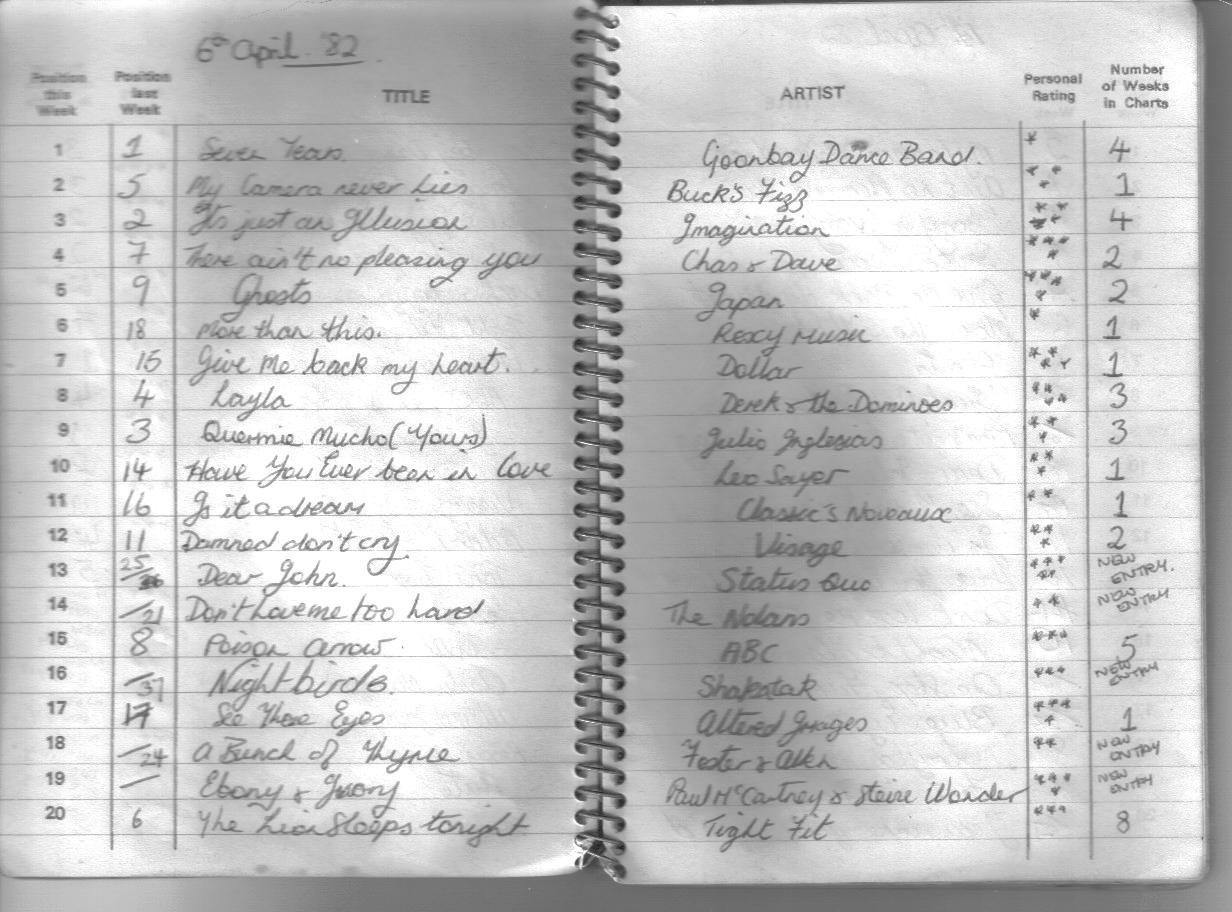 6th April. '82.
Position this Week Position last Week TITLE ARTIST Personal Rating Number of Weeks in Charts
1 1 Seven Tears. Goombay Dance Band. * 4
2 5 My Camera never Lies Buck's Fizz *** 1
3 2 It's just an Illusion Imagination **** 4
4 7 There ain't no pleasing you Chas & Dave **** 2
5 9 Ghosts Japan **** 2
6 18 More than this. Roxy Music * 1
7 15 Give Me back my heart. Dollar **** 1
8 4 Layla Derek & the Dominoes **** 3
9 3 Quiermie Mucho (Yours) Julio Inglesias *** 3
10 14 Have You Ever been in Love Leo Sayer *** 1
11 16 Is it a dream Classic's Noveaux ** 1
12 11 Damned don't cry. Visage *** 2
13 25/ Dear John. Status Quo ***** NEW ENTRY.
14 /21 Don't Love me too hard The Nolans ** NEW ENTRY
15 8 Poison arrow. ABC *** 5
16 /37 Nightbirds. Shakatak *** NEW ENTRY
17 17 See Those Eyes Altered Images **** 1
18 /24 A Bunch of Thyme Foster & Allen ** NEW ENTRY
19 / Ebony & Ivory Paul McCartney & Stevie Wonder **** NEW ENTRY
20 6 The Lion Sleeps tonight Tight Fit *** 8